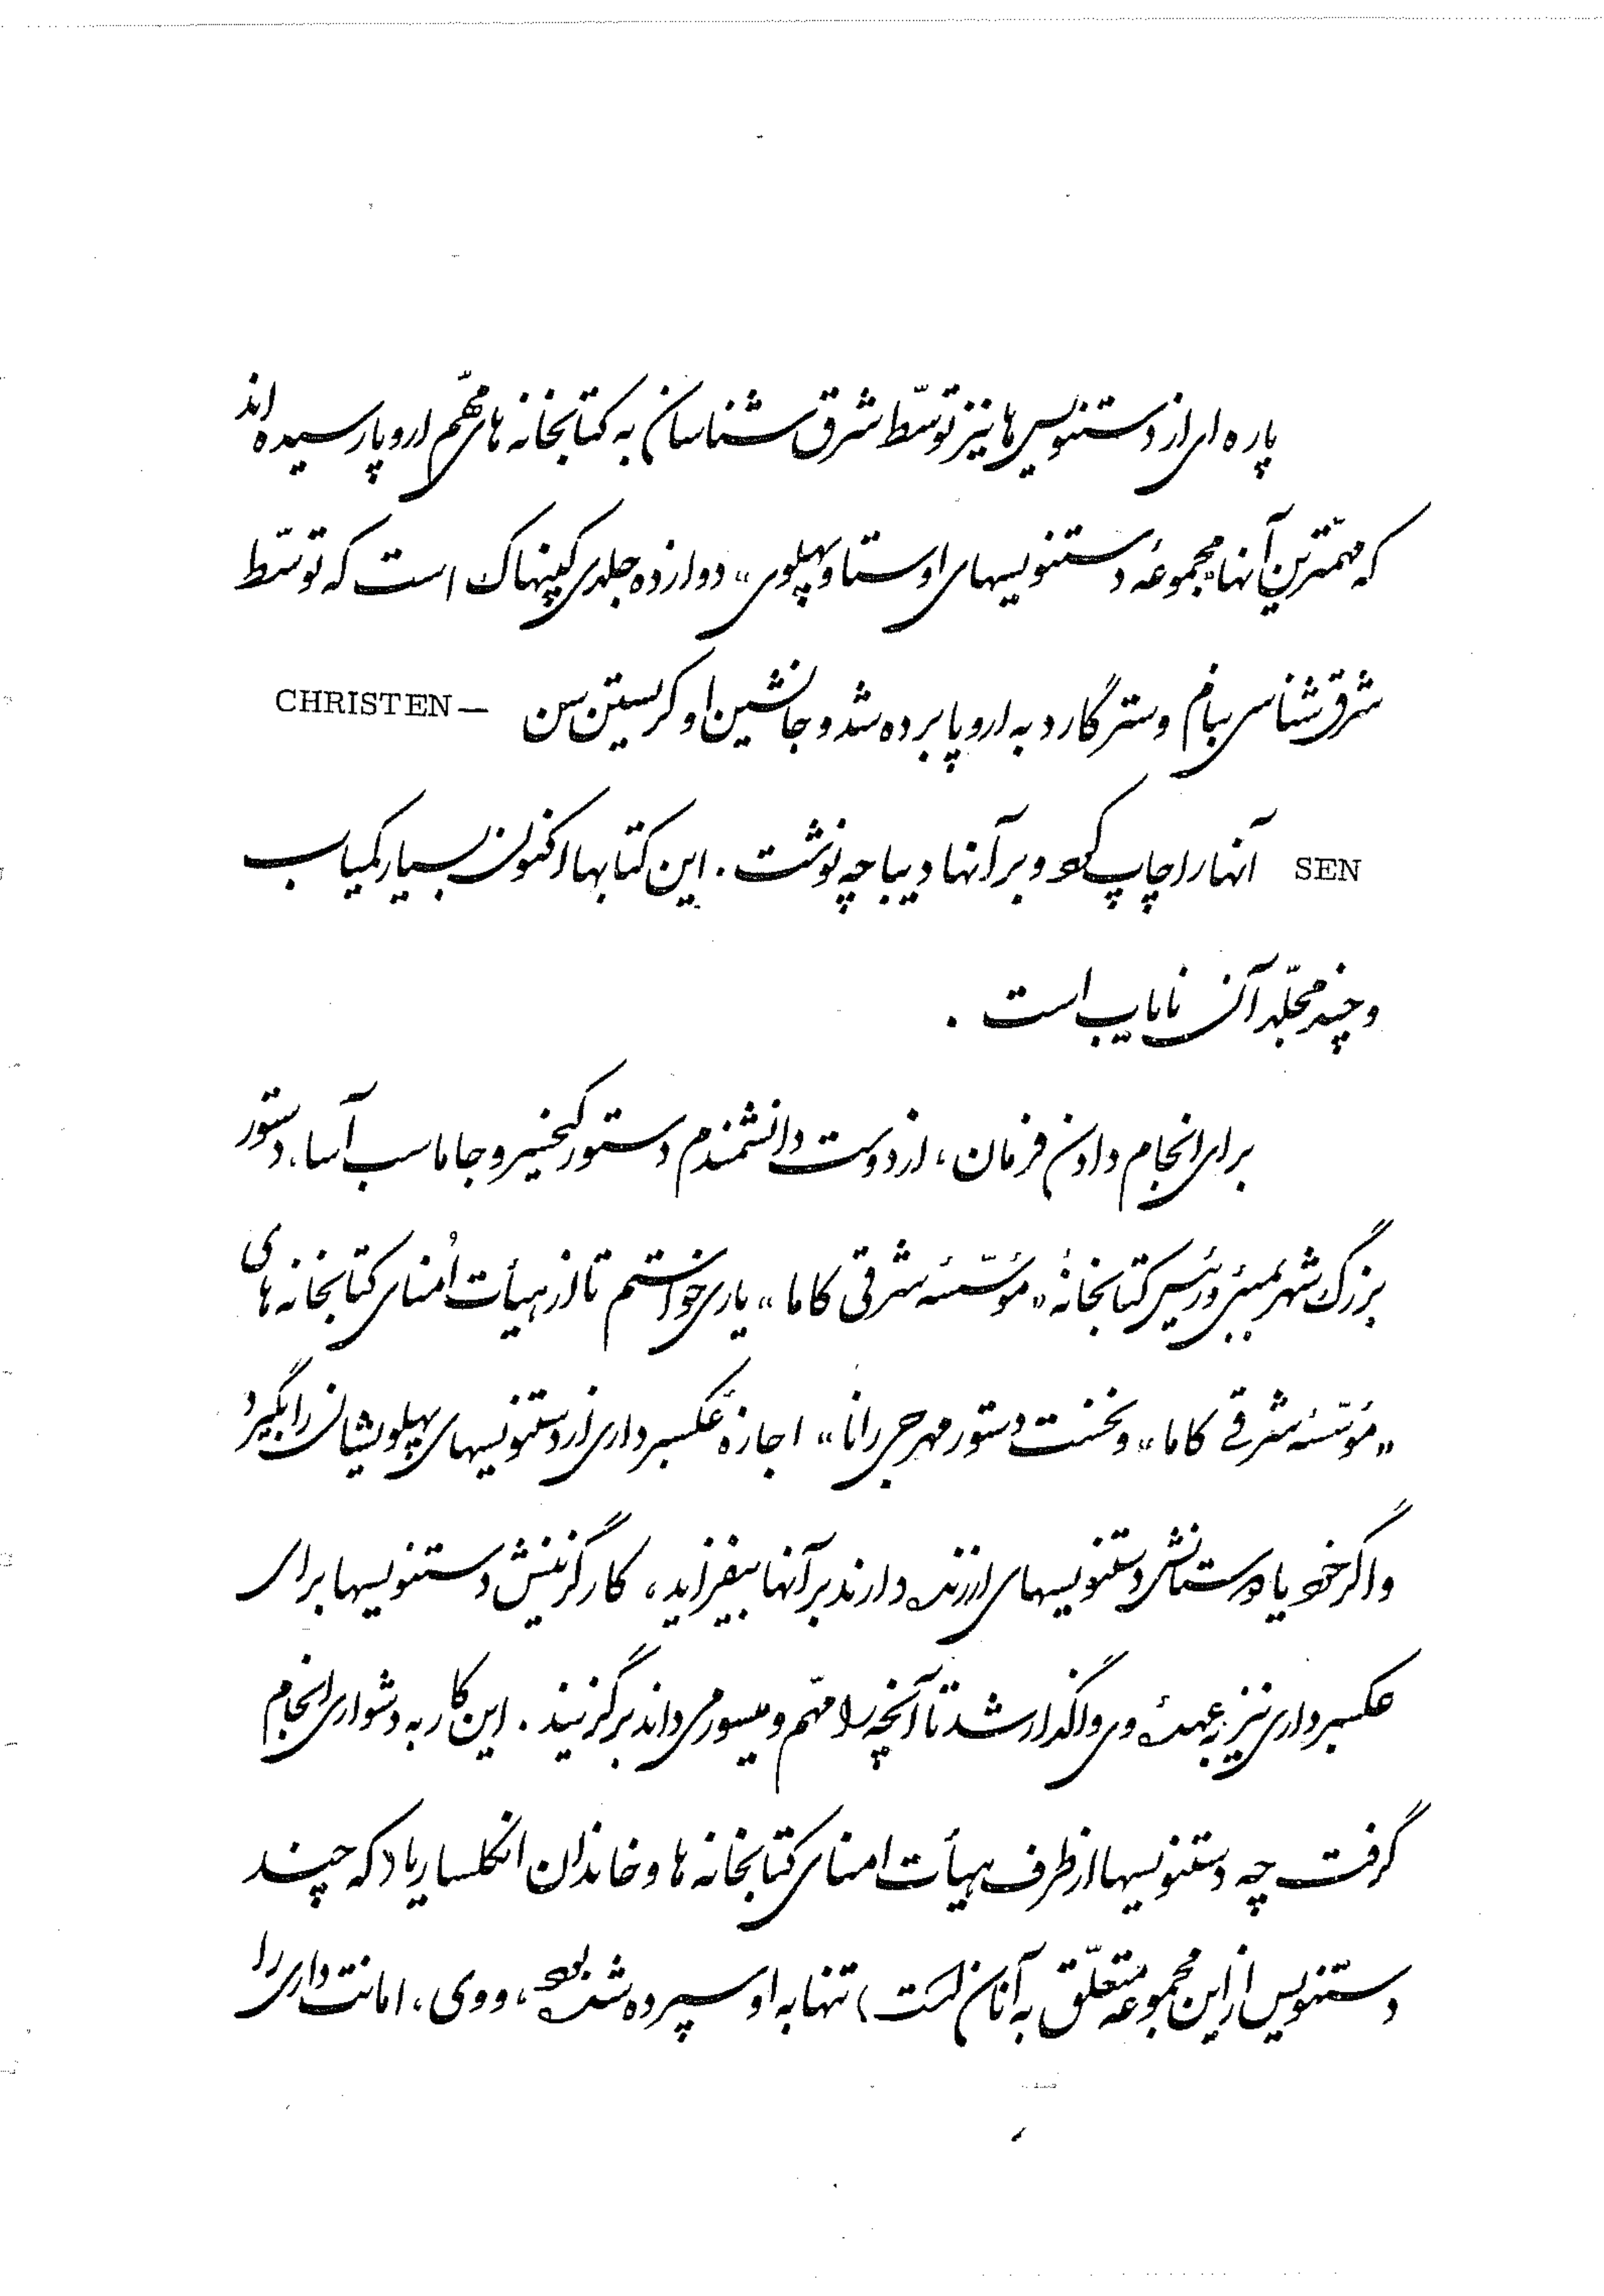 پاره ای از دستنویس ها نیز توسّط شرق شناسان به کتابخانه های مهّم اروپا رسیده اند
که مهمّترین آنها «مجموعهٔ دستنویسهای اوستا و پهلوی» دوازده جلدی کپنهاک است که توسّط
شرق شناسی بنام وسترگارد به اروپا برده شد و جانشین او کریستن سن CHRISTEN –
SEN آنها را چاپ کرد و بر آنها دیباچه نوشت . این کتابها اکنون بسیار کمیاب
و چند مجلّد آن نایاب است .
برای انجام دادن فرمان ، از دوست دانشمندم دستور کیخسرو جاماسب آسا ، دستور
بزرگ شهر بمبئی و رئیس کتابخانهٔ «مؤسّسهٔ شرقی کاما» یاری خواستم تا از هیأت اُمنای کتابخانه های
«مؤسّسهٔ شرقی کاما» و نخست دستور مهرجی رانا» اجازهٔ عکسبرداری از دستنویسهای پهلویشان را بگیرد
و اگر خود یا دوستانش دستنویسهای ارزنده دارند بر آنها بیفزاید ، کار گزینش دستنویسها برای
عکسبرداری نیز به عهدهٔ وی واگذار شد تا آنچه را مهّم و میسور می داند برگزیند . این کار به دشواری انجام
گرفت چه دستنویسها از طرف هیأت امنای کتابخانه ها و خاندان انکلساریا (که چند
دستنویس از این مجموعه متعلّق به آنان است) تنها به او سپرده شده بود ، و وی ، امانت داری را